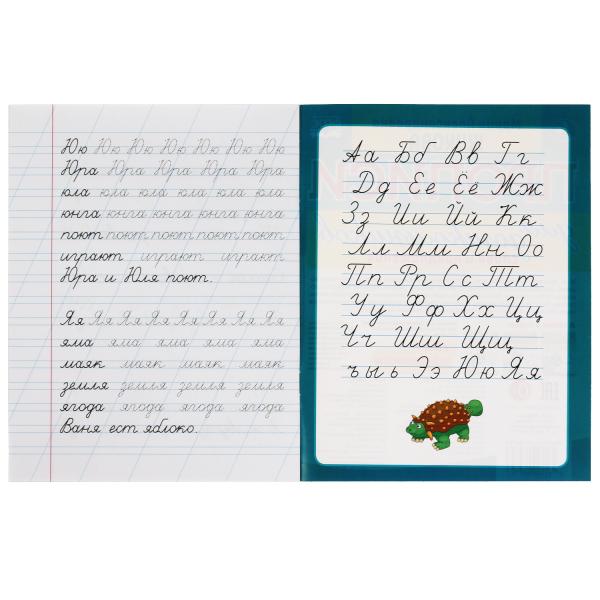 Юю Юю Юю Юю Юю Юю Юю
Юра Юра Юра Юра Юра
юла юла юла юла юла юла
юнга юнга юнга юнга юнга
поют поют поют поют поют
играют играют играют
Юра и Юля поют.
Яя Яя Яя Яя Яя Яя Яя Яя
яма яма яма яма яма
маяк маяк маяк маяк
земля земля земля земля
ягода ягода ягода ягода
Ваня ест яблоко.
Аа Бб Вв Гг
Дд Ее Ёё Жж
Зз Ии Йй Кк
Лл Мм Нн Оо
Пп Рр Сс Тт
Уу Фф Хх Цц
Чч Шш Щщ
ъ ы ь Ээ Юю Яя